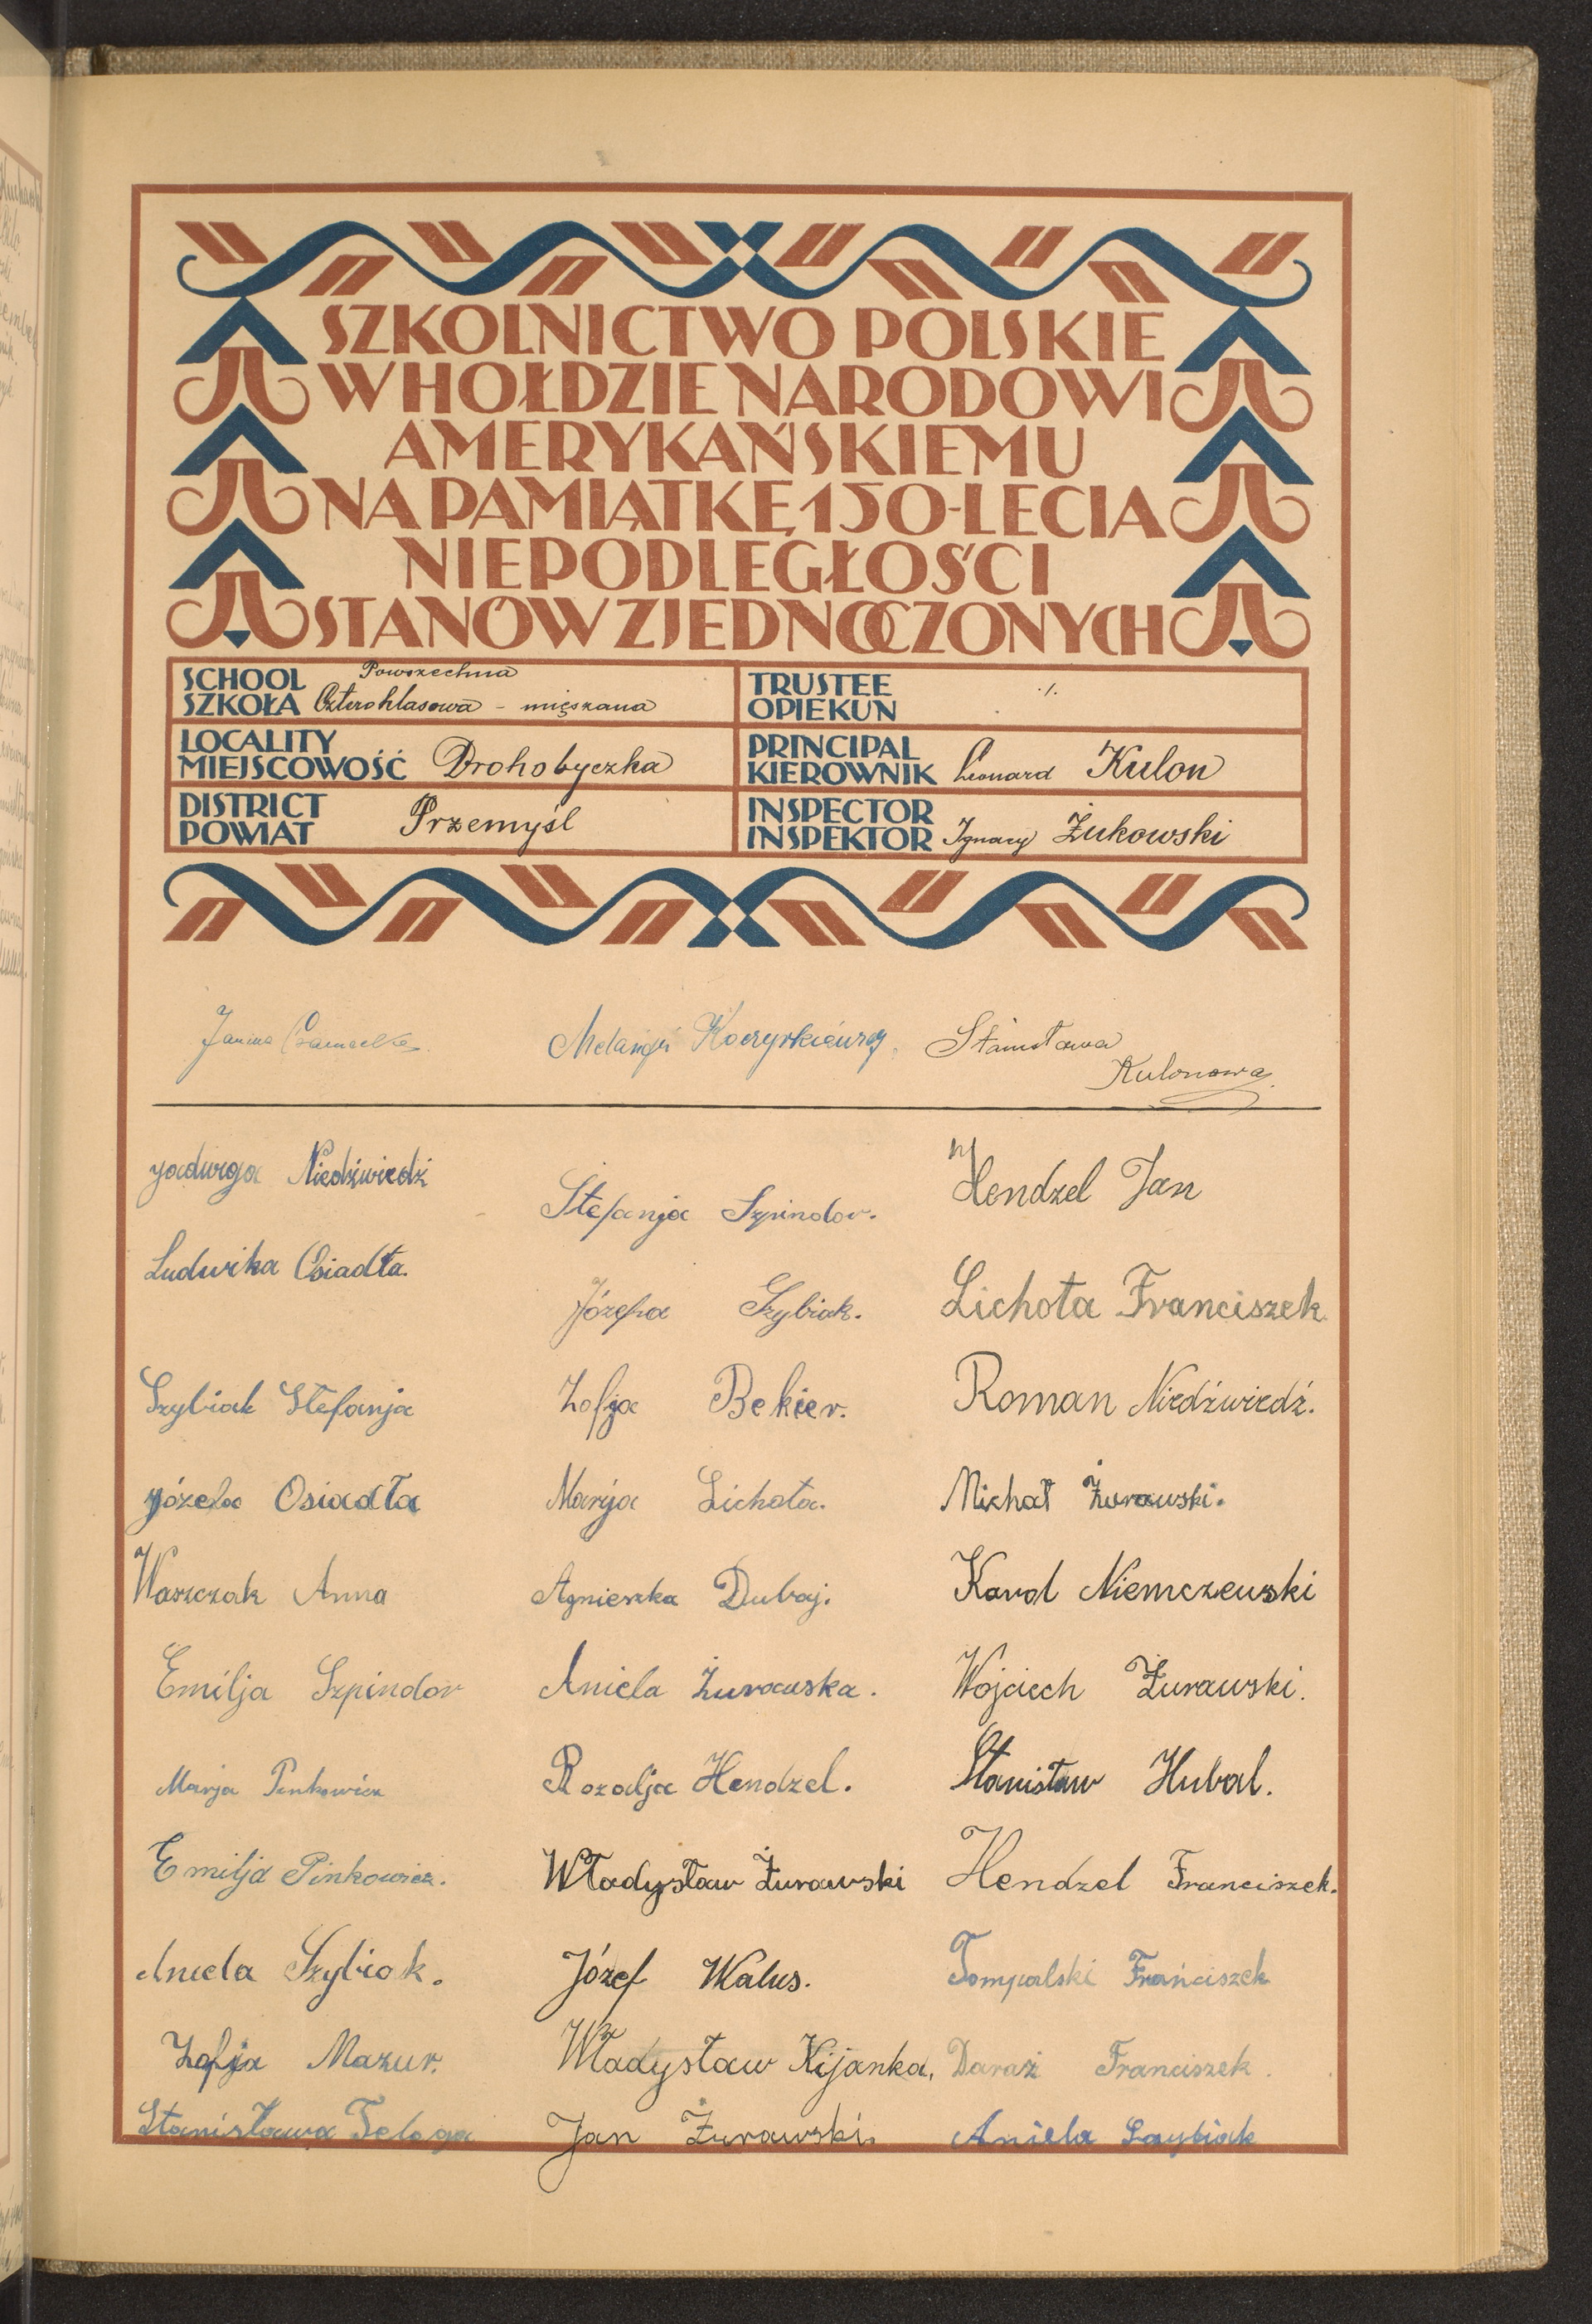 SZKOLNICTWO POLSKIE
W HOŁDZIE NARODOWI
AMERYKAŃSKIEMU
NA PAMIĄTKĘ 150-LECIA
NIEPODLEGŁOŚCI
STANÓW ZJEDNOCZONYCH
SCHOOL
SZKOŁA
Powszechna
Czteroklasowa - mięszana
TRUSTEE
OPIEKUN
./.
LOCALITY
MIEJSCOWOŚĆ
Drohobyczka
PRINCIPAL
KIEROWNIK
Leonard Kulon
DISTRICT
POWIAT
Przemyśl
INSPECTOR
INSPEKTOR
Ignacy Żukowski
Janina
Stanisława
Kulonowa
Jadwiga Niedźwiedź
Stefanja Szpindor.
Hendzel Jan
Ludwika Osiadła.
Józefa Szybiak.
Lichota Franciszek
Szybiak Stefanja
Zofja Bekier.
Roman Niedźwiedź.
Józefa Osiadła
Marja Lichota.
Michał Żurawski.
Waszczak Anna
Agnieszka Dubaj.
Karol Niemczewski
Emilja Szpindor
Aniela Żurawska.
Wojciech Żurawski.
Marja Pinkowicz
Rozalja Hendzel.
Stanisław Hubal.
Emilja Pinkowicz.
Władysław Żurawski
Hendzel Franciszek.
Aniela Szybiak.
Józef Walus.
Tompalski Franciszek
Zofja Mazur.
Władysław Kijanka.
Daraż Franciszek.
Stanisława Telega
Jan Żurawski.
Aniela Szybiak